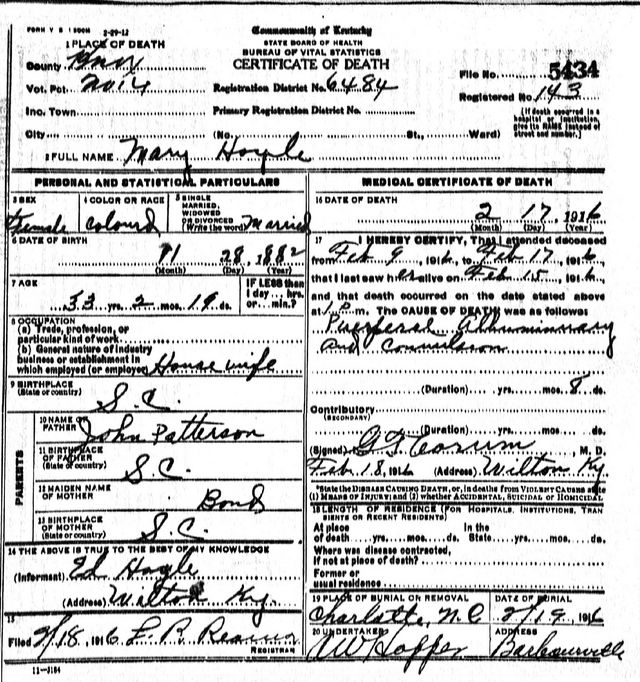 FORM V S 1 500M 2-29-12
Commonwealth of Kentucky
STATE BOARD OF HEALTH
BUREAU OF VITAL STATISTICS
CERTIFICATE OF DEATH
1 PLACE OF DEATH
County Knox
Vot. Pct. No 14 Registration District No. 6484
File No. 5434
Registered No. 143
Inc. Town Primary Registration District No.
City (No. St., Ward)
[If death occurred in a hospital or institution, give its NAME instead of street and number.]
2 FULL NAME Mary Hoyle
PERSONAL AND STATISTICAL PARTICULARS
3 SEX Female
4 COLOR OR RACE Colourd
5 SINGLE MARRIED, WIDOWED OR DIVORCED (Write the word) Married
6 DATE OF BIRTH
11 28, 1882
(Month) (Day) (Year)
7 AGE
33 yrs. 2 mos. 19 ds.
IF LESS than 1 day ... hrs. or min.?
8 OCCUPATION
(a) Trade, profession, or particular kind of work
(b) General nature of industry business or establishment in which employed (or employer) House wife
9 BIRTHPLACE (State or country) S.C.
PARENTS
10 NAME OF FATHER John Patterson
11 BIRTHPLACE OF FATHER (State or country) S.C.
12 MAIDEN NAME OF MOTHER Bond
13 BIRTHPLACE OF MOTHER (State or country) S.C.
14 THE ABOVE IS TRUE TO THE BEST OF MY KNOWLEDGE
(Informant) Ed Hoyle
(Address) Wilton Ky.
15
Filed 2/18, 1916
REGISTRAR
11-3184
MEDICAL CERTIFICATE OF DEATH
16 DATE OF DEATH
2 17, 1916
(Month) (Day) (Year)
17 I HEREBY CERTIFY, That I attended deceased
from Feb 9, 1916, to Feb 17, 1916,
that I last saw her alive on Feb 15, 1916,
and that death occurred on the date stated above
at m. The CAUSE OF DEATH was as follows:
Puerperal
and
(Duration) yrs. mos. 8 ds.
Contributory
(SECONDARY)
(Duration) yrs. mos. ds.
(Signed) M. D.
Feb. 18, 1916 (Address) Wilton Ky.
*State the DISEASE CAUSING DEATH, or, in deaths from VIOLENT CAUSES state
(1) MEANS OF INJURY; and (2) whether ACCIDENTAL, SUICIDAL or HOMICIDAL
18 LENGTH OF RESIDENCE (FOR HOSPITALS, INSTITUTIONS, TRANSIENTS OR RECENT RESIDENTS)
At place of death yrs. mos. ds. In the State yrs. mos. ds.
Where was disease contracted,
if not at place of death?
Former or
usual residence
19 PLACE OF BURIAL OR REMOVAL
Charlotte, N.C
DATE OF BURIAL
2/19 1916
20 UNDERTAKER
ADDRESS
Barbourville